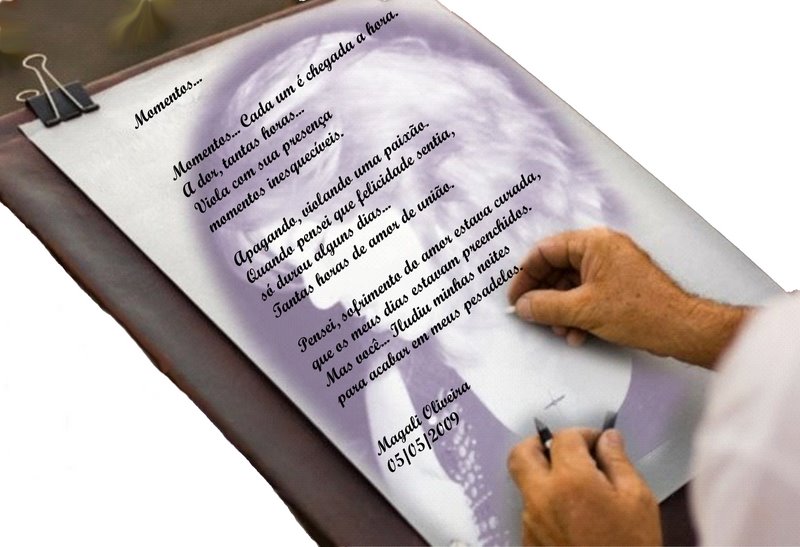 Momentos...
Momentos... Cada um é chegada a hora.
A dor, tantas horas...
Viola com sua presença
momentos inesquecíveis.
Apagando, violando uma paixão.
Quando pensei que felicidade sentia,
só durou alguns dias...
Tantas horas de amor de união.
Pensei, sofrimento do amor estava curada,
que os meus dias estavam preenchidos.
Mas você... Iludiu minhas noites
para acabar em meus pesadelos.
Magali Oliveira
05/05/2009